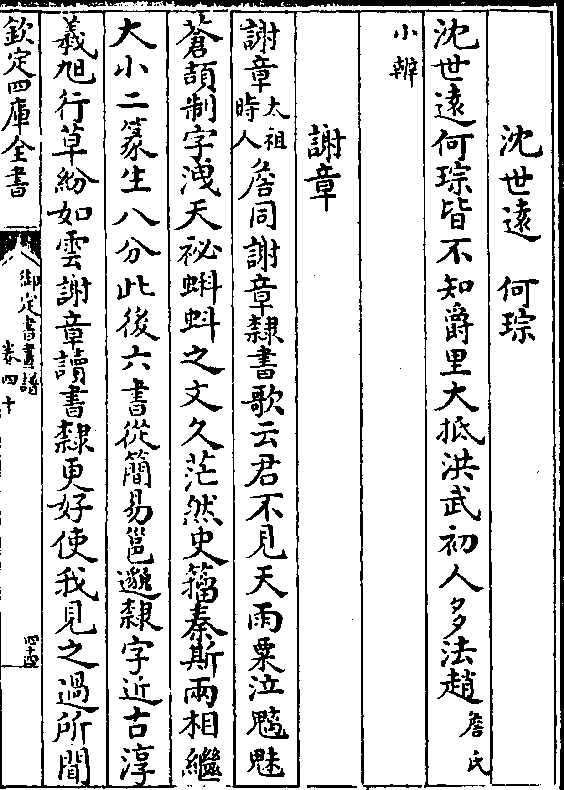 沈世遠　何琮
沈世遠何琮皆不知爵里大抵洪武初人多法趙詹氏
小辨
謝章
謝章太祖時人詹同謝章隸書歌云君不見天雨粟泣魑魅
蒼頡制字洩天祕蝌蚪之文久茫然史籀秦斯兩相繼
大小二篆生八分此後六書從簡易邕邈隸字近古淳
羲旭行草紛如雲謝章讀書隸更好使我見之過所聞
欽定四庫全書
御定書畫譜
卷四十
四十四